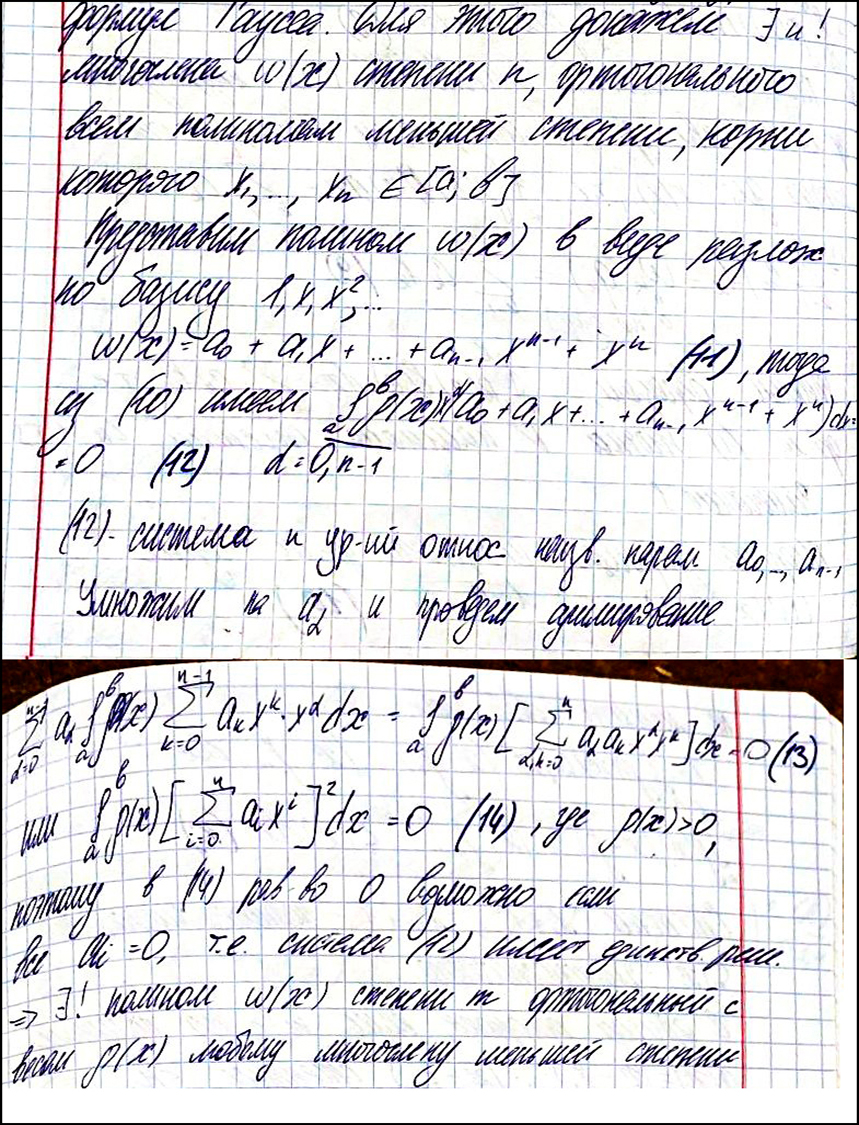 формул Гаусса. Для этого докажем ∃ и !
многочлена ω(x) степени n, ортогонального
всем полиномам меньшей степени, корни
которого x₁,..., xₙ ∈ [a; b]
Представим полином ω(x) в виде разлож
по базису 1, x, x²,...
ω(x) = a₀ + a₁x + ... + aₙ₋₁ xⁿ⁻¹ + xⁿ (11), тогда
из (10) имеем ∫ₐᵇ ρ(x) x^α (a₀ + a₁x + ... + aₙ₋₁ xⁿ⁻¹ + xⁿ) dx =
= 0 (12) α = 0, n-1
(12) - система n ур-ий относ неизв. парам a₀,..., aₙ₋₁
Умножим на a_α и проведем суммирование
∑_{α=0}^{n-1} a_α ∫ₐᵇ ρ(x) ∑_{k=0}^{n-1} aₖ xᵏ · x^α dx = ∫ₐᵇ ρ(x) [∑_{α,k=0}^{n} a_α aₖ x^α xᵏ] dx = 0 (13)
или ∫ₐᵇ ρ(x) [∑_{i=0}^{n} aᵢ xⁱ]² dx = 0 (14), где ρ(x) > 0,
поэтому в (14) рав во 0 возможно если
все aᵢ = 0, т.е. система (12) имеет единств. реш.
=> ∃! полином ω(x) степени n ортогональный с
весом ρ(x) любому многочлену меньшей степени